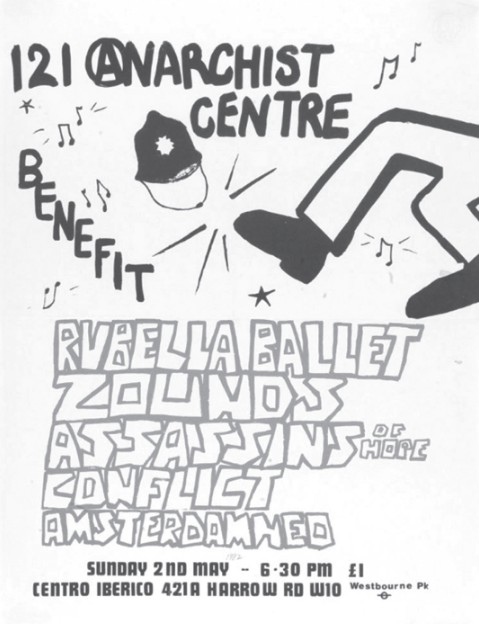 121 ANARCHIST
CENTRE
BENEFIT
RUBELLA BALLET
ZOUNDS
ASSASSINS OF HOPE
CONFLICT
AMSTERDAMNED
1982
SUNDAY 2ND MAY - 6·30 PM £1
CENTRO IBERICO 421A HARROW RD W10 Westbourne Pk